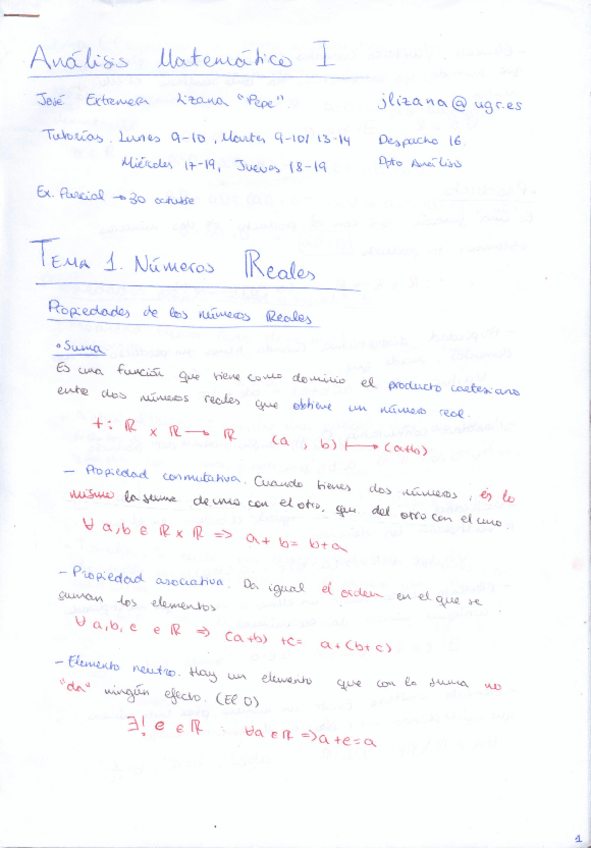 Análisis Matemático I
José Extremera Lizana "Pepe". jlizana@ugr.es
Tutorías. Lunes 9-10, Martes 9-10/13-14 Despacho 16.
Miércoles 17-19, Jueves 18-19. Dpto Análisis
Ex. Parcial → 30 octubre
Tema 1. Números Reales
Propiedades de los números Reales
• Suma
Es una función que tiene como dominio el producto cartesiano
entre dos números reales que obtiene un número real.
+: ℝ x ℝ → ℝ (a, b) ↦ (a+b)
- Propiedad conmutativa. Cuando tienes dos números, es lo
mismo la suma de uno con el otro, que del otro con el uno.
∀ a,b ∈ ℝ x ℝ => a+b = b+a
- Propiedad asociativa. Da igual el orden en el que se
suman los elementos
∀ a,b,c ∈ ℝ => (a+b)+c = a+(b+c)
- Elemento neutro. Hay un elemento que con la suma no
"da" ningún efecto. (El 0)
∃! e ∈ ℝ : ∀a ∈ ℝ => a+e=a
1